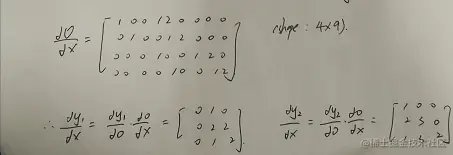 dO/dx = [ 1 0 0 1 2 0 0 0 0
0 1 0 0 1 2 0 0 0
0 0 0 1 0 0 1 2 0
0 0 0 0 1 0 0 1 2 ] shape : 4x9).
∴ dy₁/dx = dy₁/dO · dO/dx = [ 0 1 0
0 2 2
0 1 2 ]. dy₂/dx = dy₂/dO · dO/dx = [ 1 0 0
2 3 0
2 ]
@稀土掘金技术社区